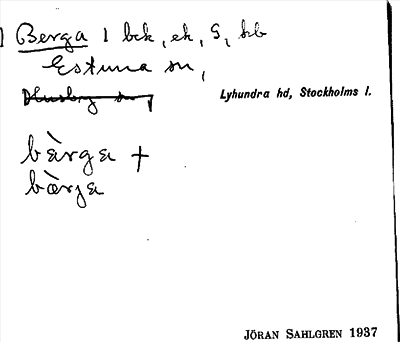 Berga 1 bck, ek, S, hb
Estuna sn,
Lyhundra hd, Stockholms l.
bàrga +
bàrja
JÖRAN SAHLGREN 1937